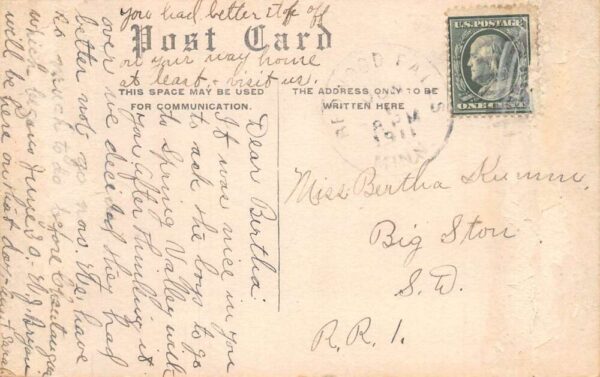 you had better stop off
Post Card
on your way home
at least & visit us.
THIS SPACE MAY BE USED
FOR COMMUNICATION.
THE ADDRESS ONLY TO BE
WRITTEN HERE
U.S. POSTAGE
ONE CENT
8 PM
1911
MINN
Dear Bertha:
It was nice in you
to ask the boys to go
to Spring Valley with
you. After thinking it
over we decided they had
better not go now. We have
so much to do before Chautauqua
which begins June 30. Wj Bryan
will be here on that day.
Sarah
Miss Bertha Kumm
Big Ston
S.D.
R.R.1.